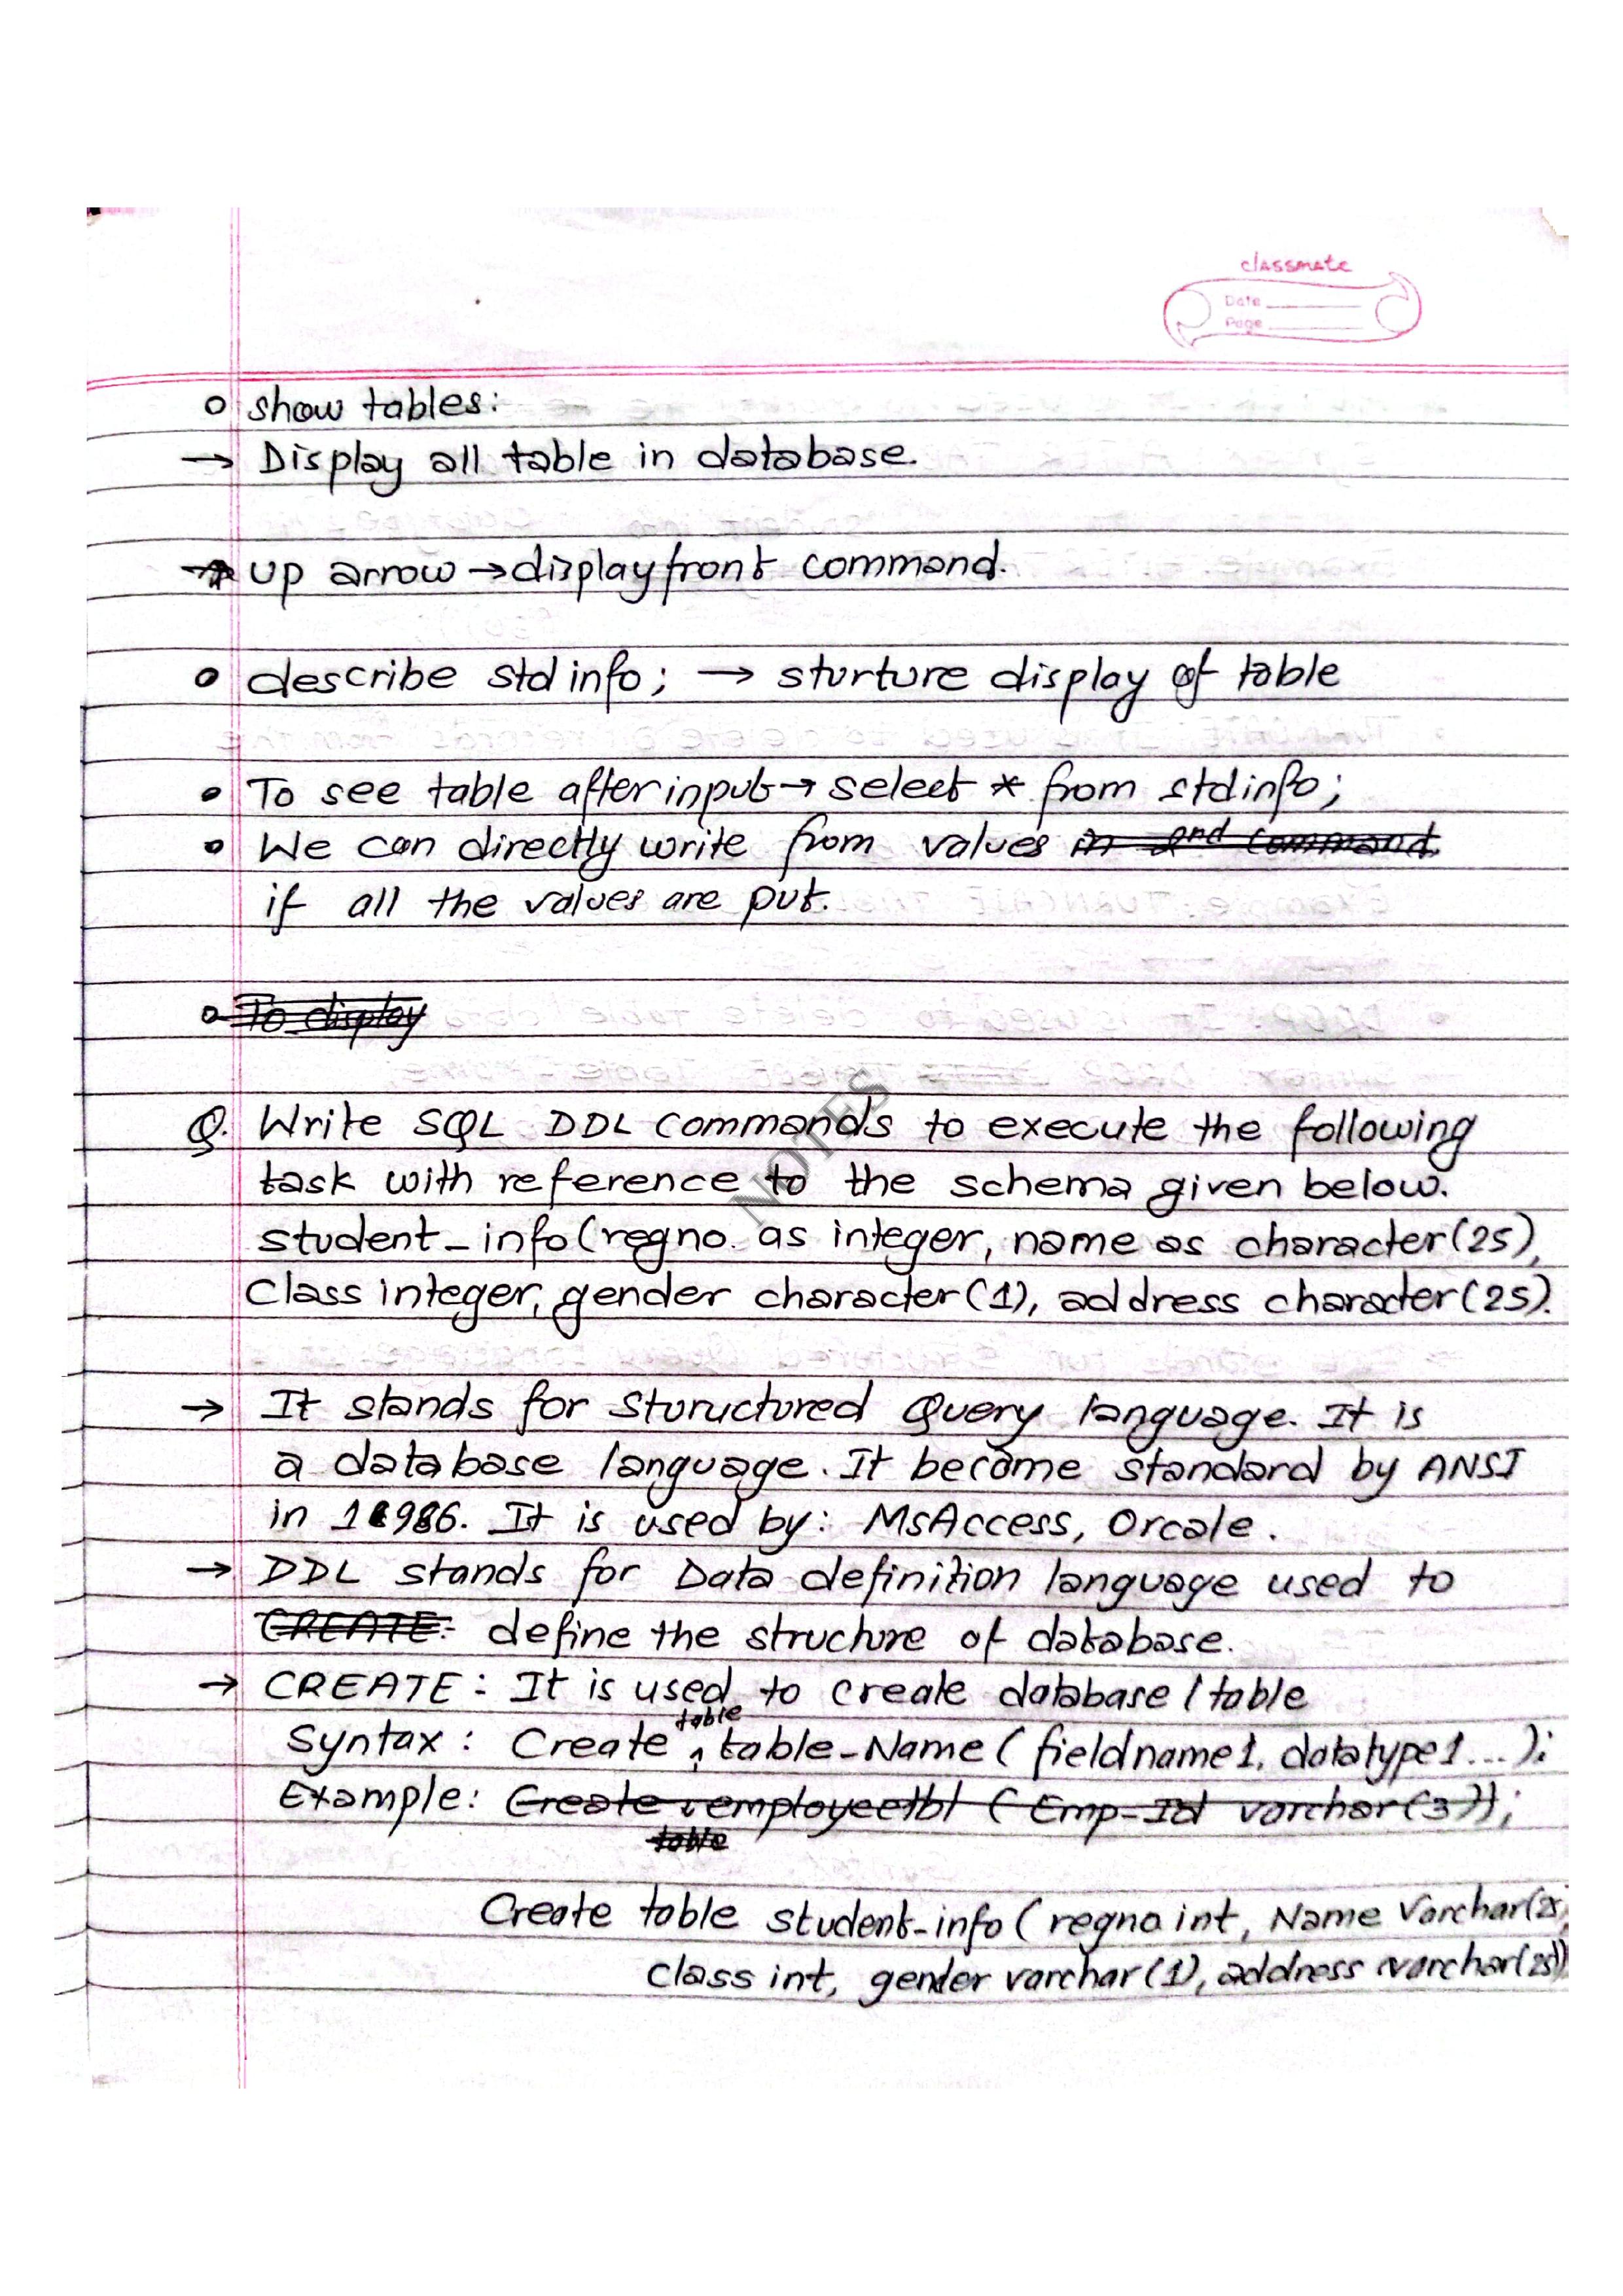 classmate
Date
Page
o show tables:
→ Display all table in database.
→ up arrow → display front command.
o describe stdinfo; → sturture display of table
• To see table after input → select * from stdinfo;
• We can directly write from values in 2nd command
if all the values are put.
o To display
Q. Write SQL DDL commands to execute the following
task with reference to the schema given below.
student_info(regno. as integer, name as character(25),
Class integer, gender character(1), address character(25).
→ It stands for Stuructured Query language. It is
a database language. It become standard by ANSI
in 1986. It is used by: MsAccess, Orcale.
→ DDL stands for Data definition language used to
CREATE: define the structure of database.
→ CREATE: It is used to create database / table
Syntax: Create table table_Name (fieldname1, datatype1...);
Example: Create employeetbl (Emp-Id varchar(3));
table
Create table student_info (regno int, Name Varchar(25,
class int, gender varchar(1), address varchar(25))
NOTES